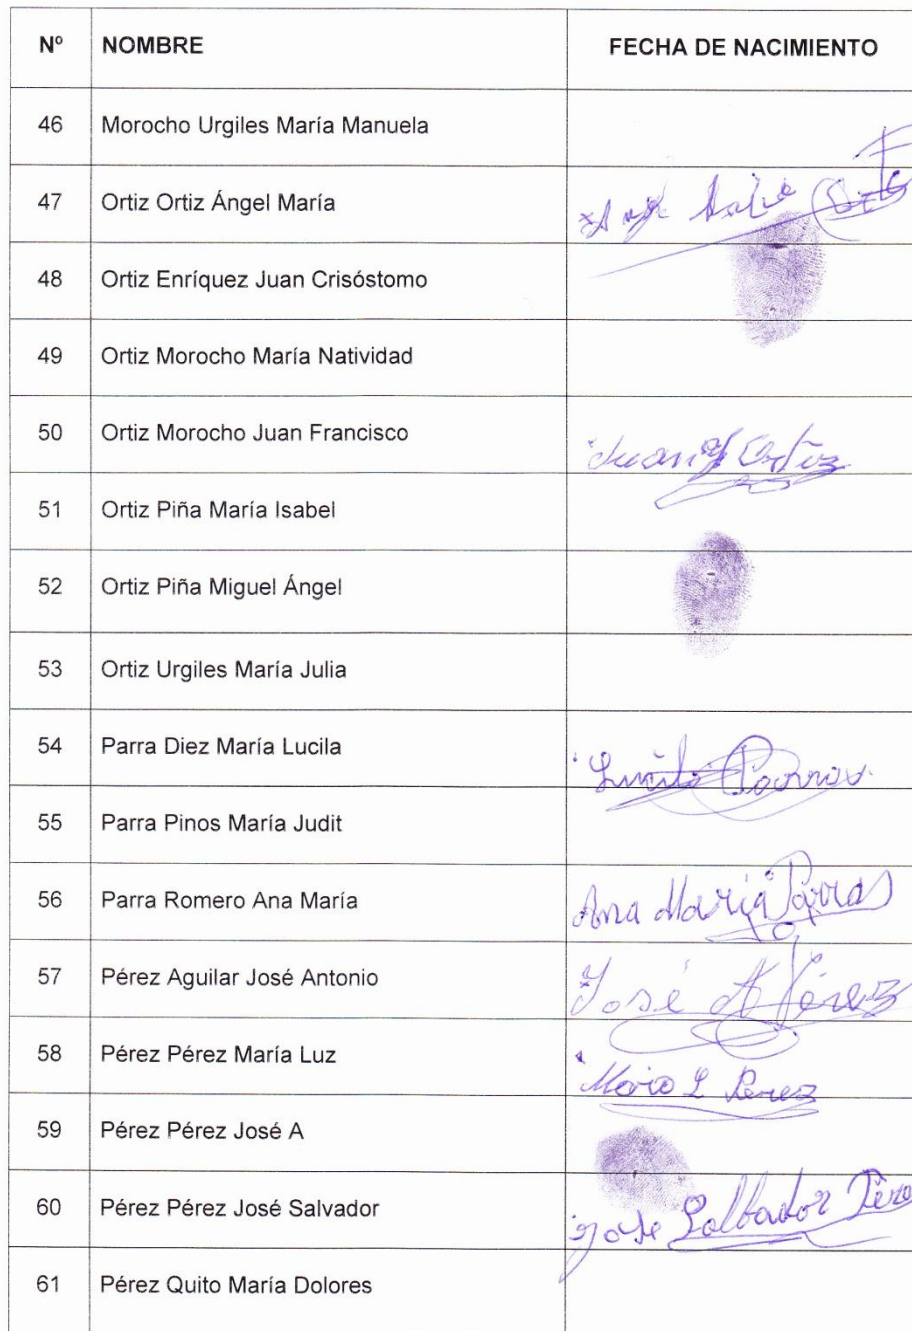 Nº NOMBRE FECHA DE NACIMIENTO
46 Morocho Urgiles María Manuela
47 Ortiz Ortiz Ángel María
48 Ortiz Enríquez Juan Crisóstomo
49 Ortiz Morocho María Natividad
50 Ortiz Morocho Juan Francisco Juan f Ortiz
51 Ortiz Piña María Isabel
52 Ortiz Piña Miguel Ángel
53 Ortiz Urgiles María Julia
54 Parra Diez María Lucila Lucila Parra
55 Parra Pinos María Judit
56 Parra Romero Ana María Ana María Parra
57 Pérez Aguilar José Antonio José A Pérez
58 Pérez Pérez María Luz Maria L Perez
59 Pérez Pérez José A
60 Pérez Pérez José Salvador Jose Salbador Pérez
61 Pérez Quito María Dolores